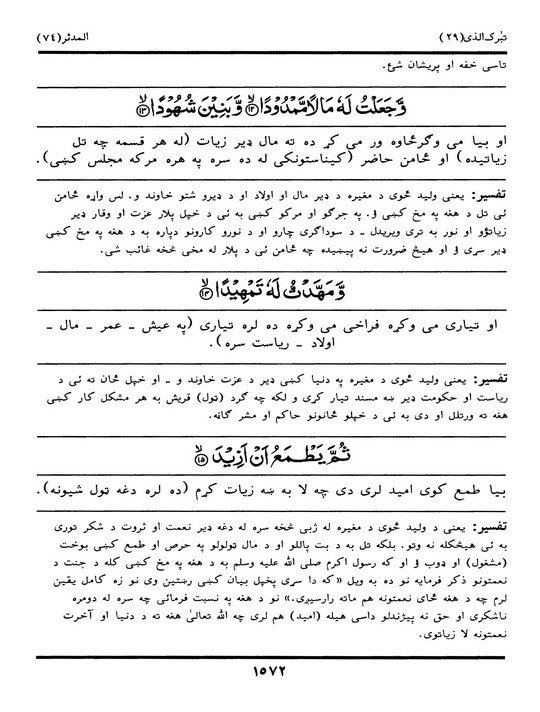 تبٰرک الذی (۲۹)
المدثر (۷۴)
تاسی خفه او پریشان شئ.
وَّجَعَلْتُ لَهٗ مَالًا مَّمْدُوْدًا ۙ﴿۱۲﴾ وَّبَنِيْنَ شُهُوْدًا ۙ﴿۱۳﴾
او بیا می وګرځاوه ور می کړ ده ته مال ډیر زیات (له هر قسمه چه تل
زیاتیده) او ځامن حاضر (کیناستونکی له ده سره په هره مرکه مجلس کښی).
تفسیر: یعنی ولید ځوی د مغیره د ډیر مال او اولاد او د ډیرو شتو خاوند و. لس واړه ځامن
ئی تل د هغه په مخ کښی ؤ. په جرګو او مرکو کښی به ئی د خپل پلار عزت او وقار ډیر
زیاتؤو او نور به تری ویریدل ـ د سوداګری چارو او د نورو کارونو دپاره به د هغه په مخ کښی
ډیر سړی ؤ او هیڅ ضرورت نه پیښیده چه ځامن ئی د پلار له مخی څخه غائب شی.
وَّمَهَّدْتُّ لَهٗ تَمْهِيْدًا ۙ﴿۱۴﴾
او تیاری می وکړه فراخی می وکړه ده لره تیاری (په عیش ـ عمر ـ مال ـ
اولاد ـ ریاست سره).
تفسیر: یعنی ولید ځوی د مغیره په دنیا کښی ډیر د عزت خاوند و ـ او خپل ځان ته ئی د
ریاست او حکومت ډیر ښه مسند تیار کړی و لکه چه ګرد (ټول) قریش به هر مشکل کار کښی
هغه ته ورتلل او دی به ئی د خپلو ځانونو حاکم او مشر ګاڼه.
ثُمَّ يَطْمَعُ اَنْ اَزِيْدَ ۙ﴿۱۵﴾
بیا طمع کوی امید لری دی چه لا به ښه زیات کړم (ده لره دغه ټول شیونه).
تفسیر: یعنی د ولید ځوی د مغیره له ژبی څخه سره له دغه ډیر نعمت او ثروت د شکر توری
به ئی هیڅکله نه وتو. بلکه تل به د بت پاللو او د مال ټولولو په حرص او طمع کښی بوخت
(مشغول) او ډوب ؤ او که رسول اکرم صلی الله علیه وسلم به د هغه په مخ کښی کله د جنت د
نعمتونو ذکر فرمایه نو ده به ویل «که دا سړی پخپل بیان کښی رښتین وی نو زه کامل یقین
لرم چه د هغه ځای نعمتونه هم ماته رارسیږی.» نو د هغه په نسبت فرمائی چه سره له دومره
ناشکری او حق نه پیژندلو داسی هیله (امید) هم لری چه الله تعالیٰ هغه ته د دنیا او آخرت
نعمتونه لا زیاتوی.
۱۵۷۲